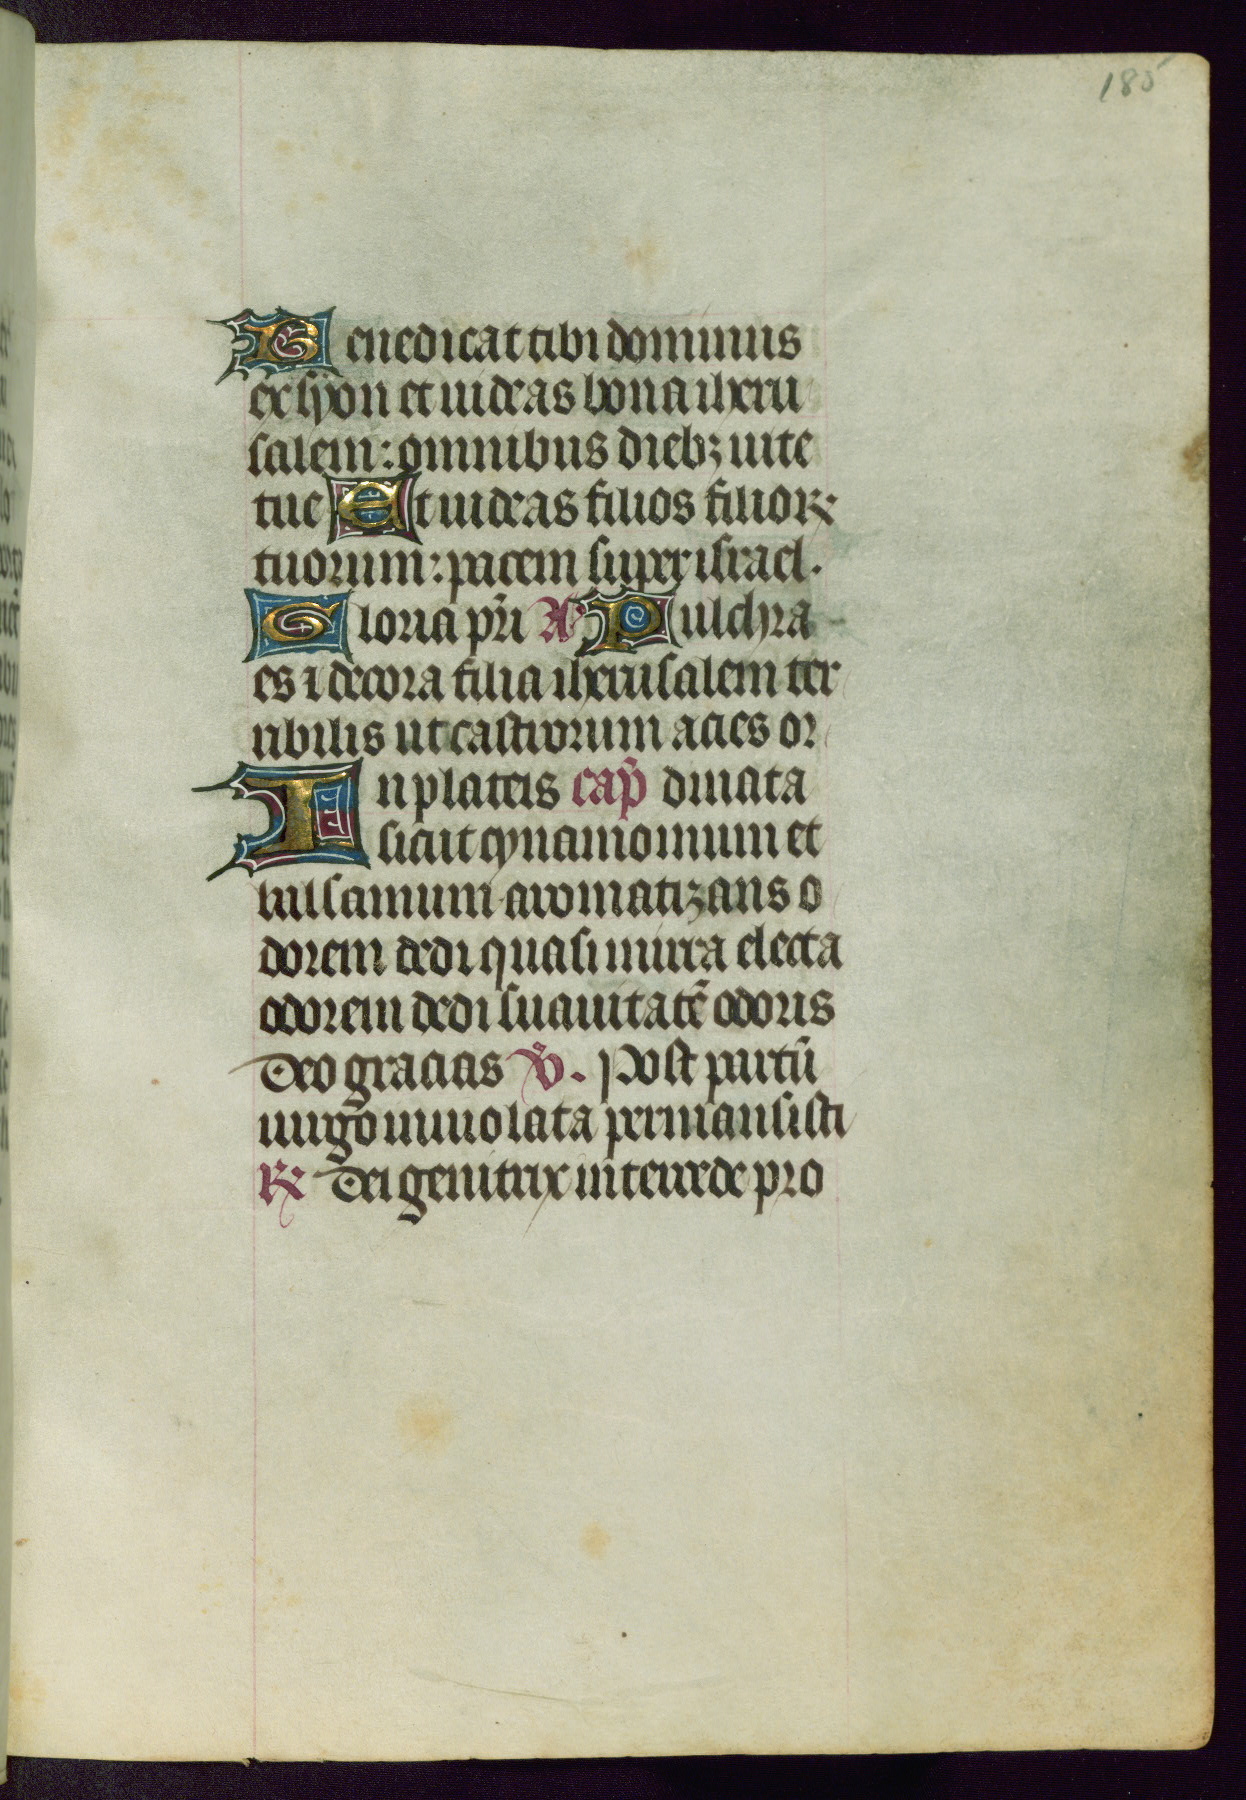 185
Benedicat tibi dominus
ex syon et uideas bona iheru
salem: omnibus dieb; uite
tue Et uideas filios filioꝝ
tuorum: pacem super israel.
Gloria pr̄i A Pulchra
es ⁊ decora filia iherusalem ter
ribilis ut castrorum acies or
In plateis cap̄ diuata
sicut cynamomum et
balsamum aromatizans o
dorem dedi quasi mirra electa
odorem dedi suauitatē odoris
Deo gracias ℣. Post partū
uirgo inuiolata permansisti
℟ Dei genitrix intercede pro